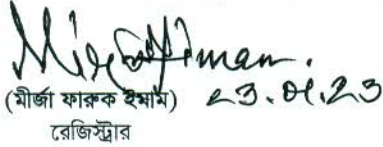 (মীর্জা ফারুক ইমাম) 23.01.23
রেজিস্ট্রার